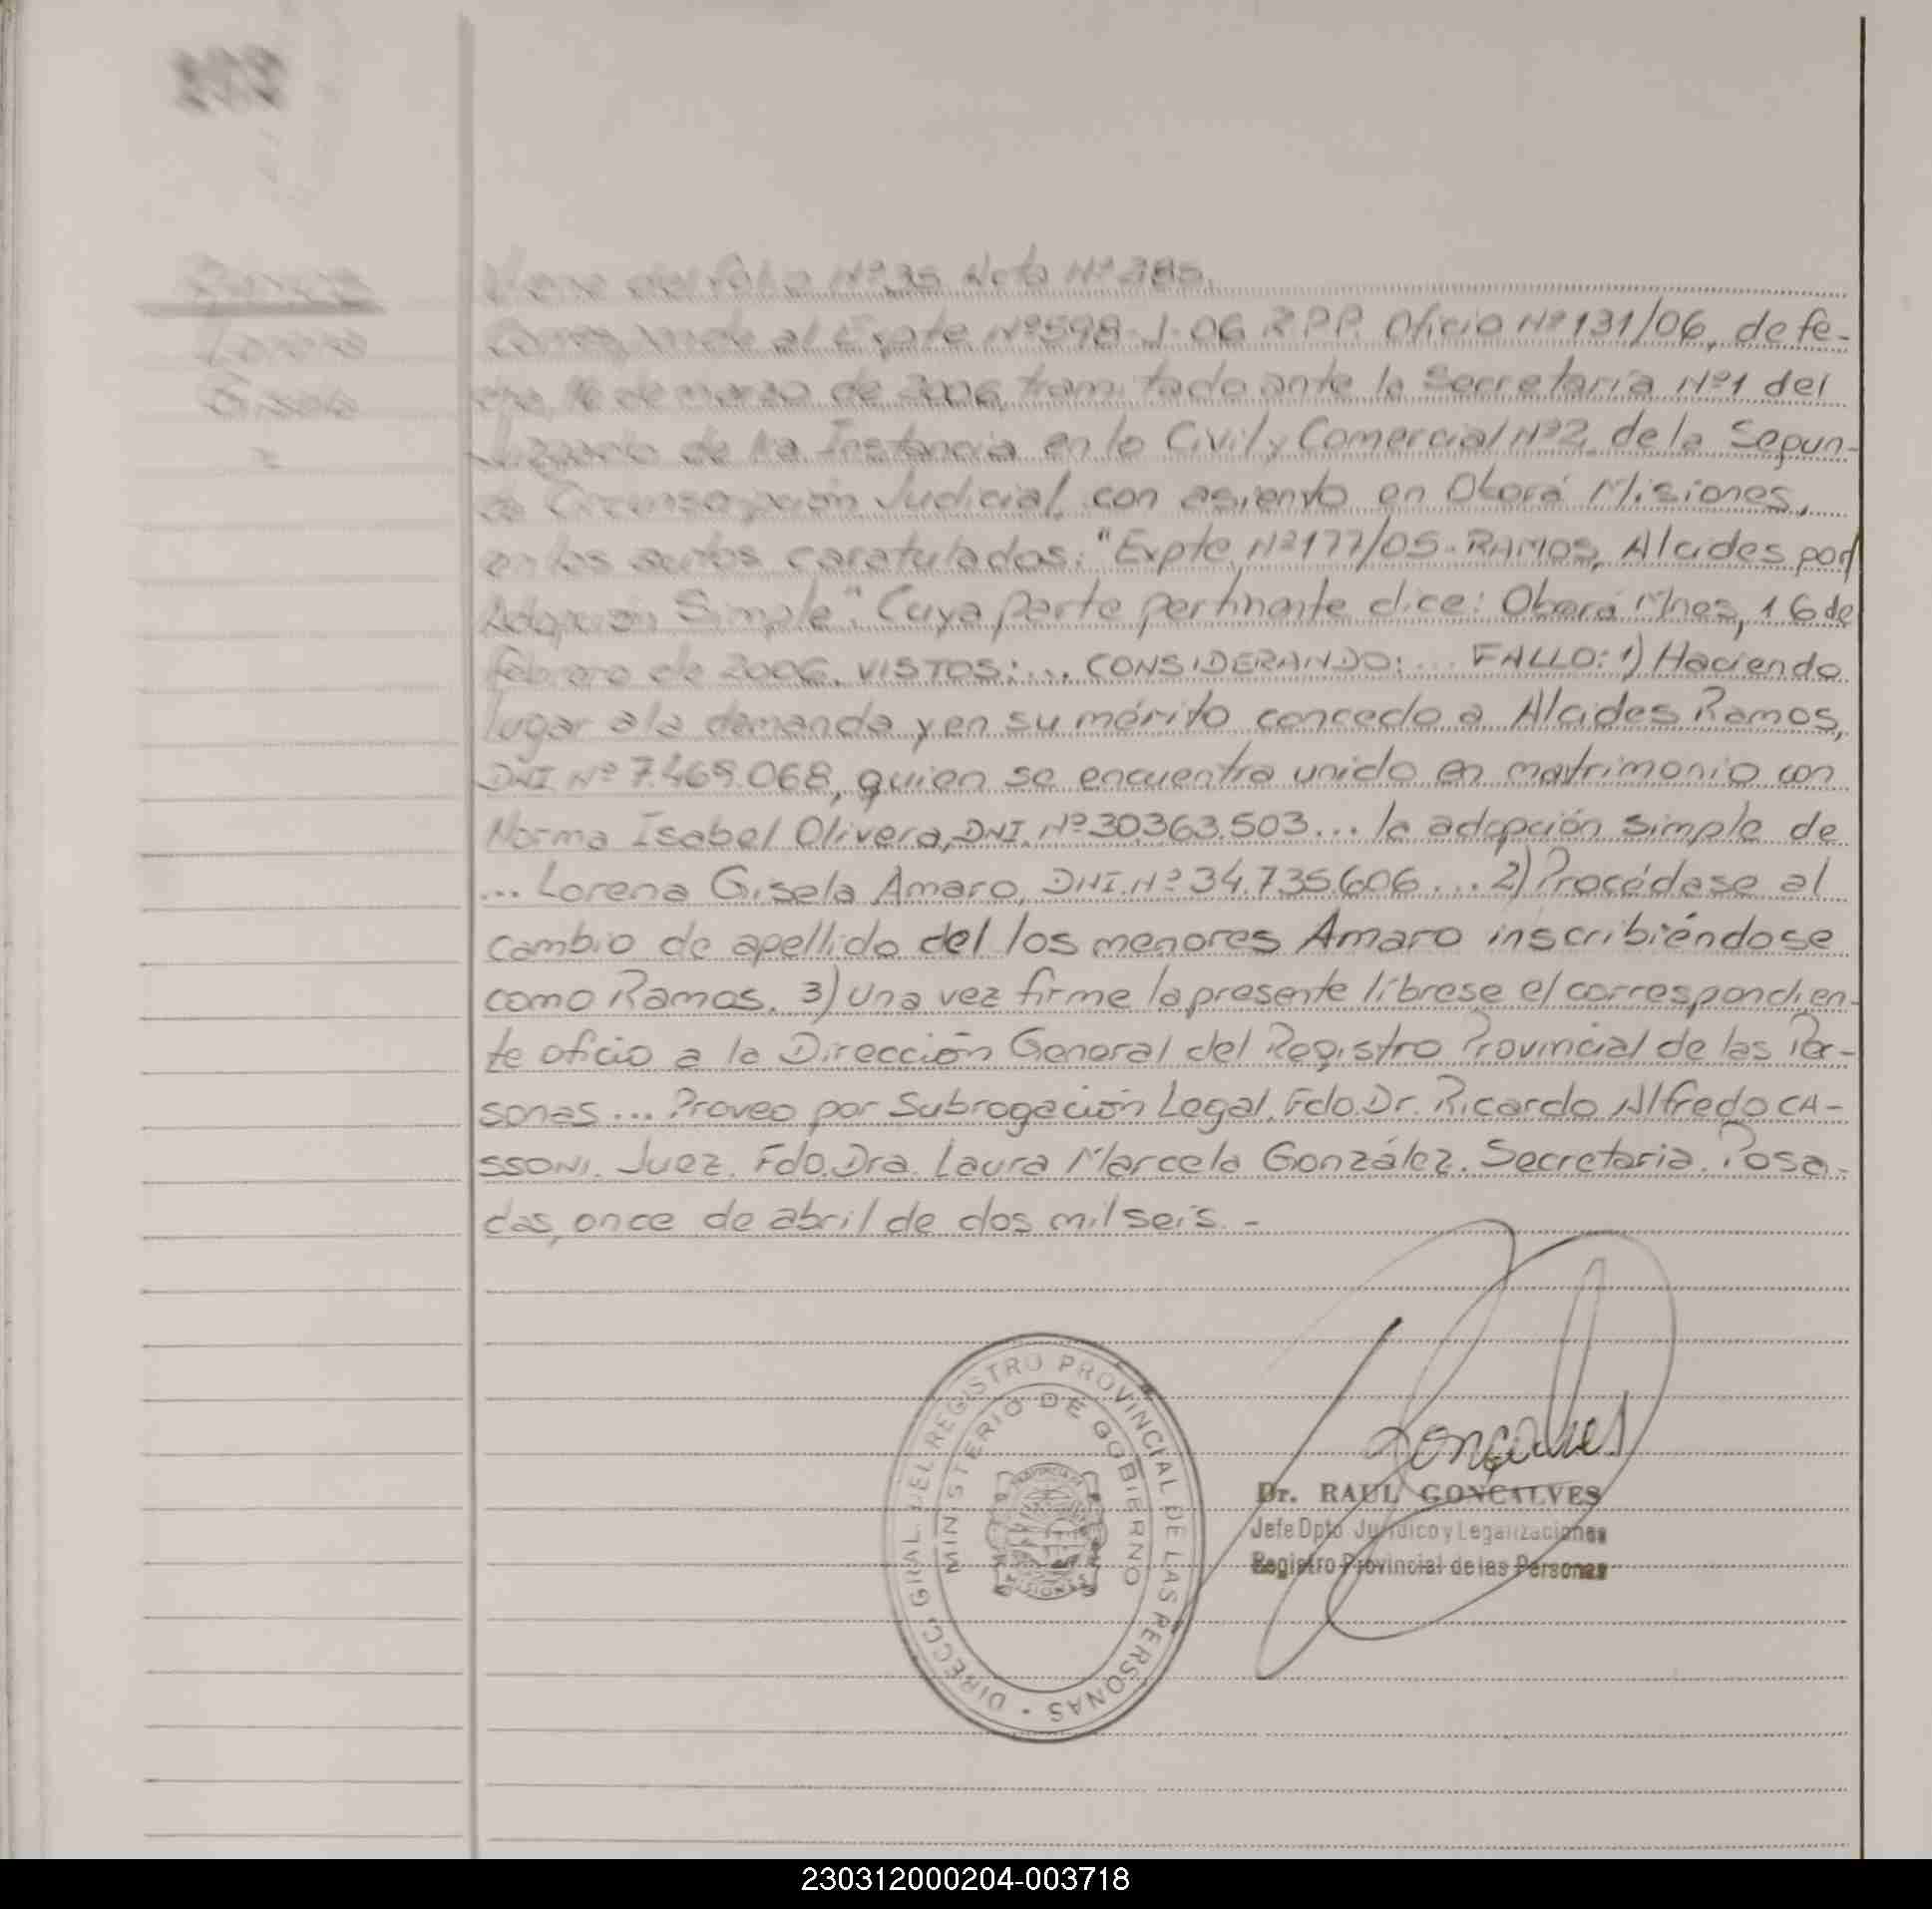 Ramos
Lorena
Gisela
Viene del folio Nº 35 Nota Nº 385.
al Expte Nº 598-J-06 R.P.P. Oficio Nº 131/06, de fe-
cha, 16 de marzo de 2006, tramitado ante la Secretaría Nº1 del
Juzgado de 1ra Instancia en lo Civil y Comercial Nº2, de la Segun-
da Circunscripción Judicial, con asiento en Oberá Misiones,
en los autos caratulados: "Expte. Nº177/05-RAMOS, Alcides por
Adopción Simple". Cuya parte pertinente dice: Oberá Mnes, 16 de
febrero de 2006. VISTOS:... CONSIDERANDO:... FALLO: 1) Haciendo
lugar a la demanda y en su mérito concedo a Alcides Ramos,
DNI Nº 7.469.068, quien se encuentra unido en matrimonio con
Norma Isabel Olivera, DNI. Nº 30.363.503... la adopción simple de
... Lorena Gisela Amaro, DNI. Nº 34.735.606... 2) Procédase al
cambio de apellido del los menores Amaro inscribiéndose
como Ramos. 3) Una vez firme la presente líbrese el correspondien-
te oficio a la Dirección General del Registro Provincial de las Per-
sonas... Proveo por Subrogación Legal. Fdo. Dr. Ricardo Alfredo CA-
SSONI. Juez. Fdo. Dra. Laura Marcela González. Secretaria. Posa-
das, once de abril de dos mil seis.-
DIRECC. GRAL. DEL REGISTRO PROVINCIAL DE LAS PERSONAS
MINISTERIO DE GOBIERNO
PROVINCIA DE
MISIONES
Gonçalves
Dr. RAUL GONCALVES
Jefe Dpto. Jurídico y Legalizaciones
Registro Provincial de las Personas
230312000204-003718